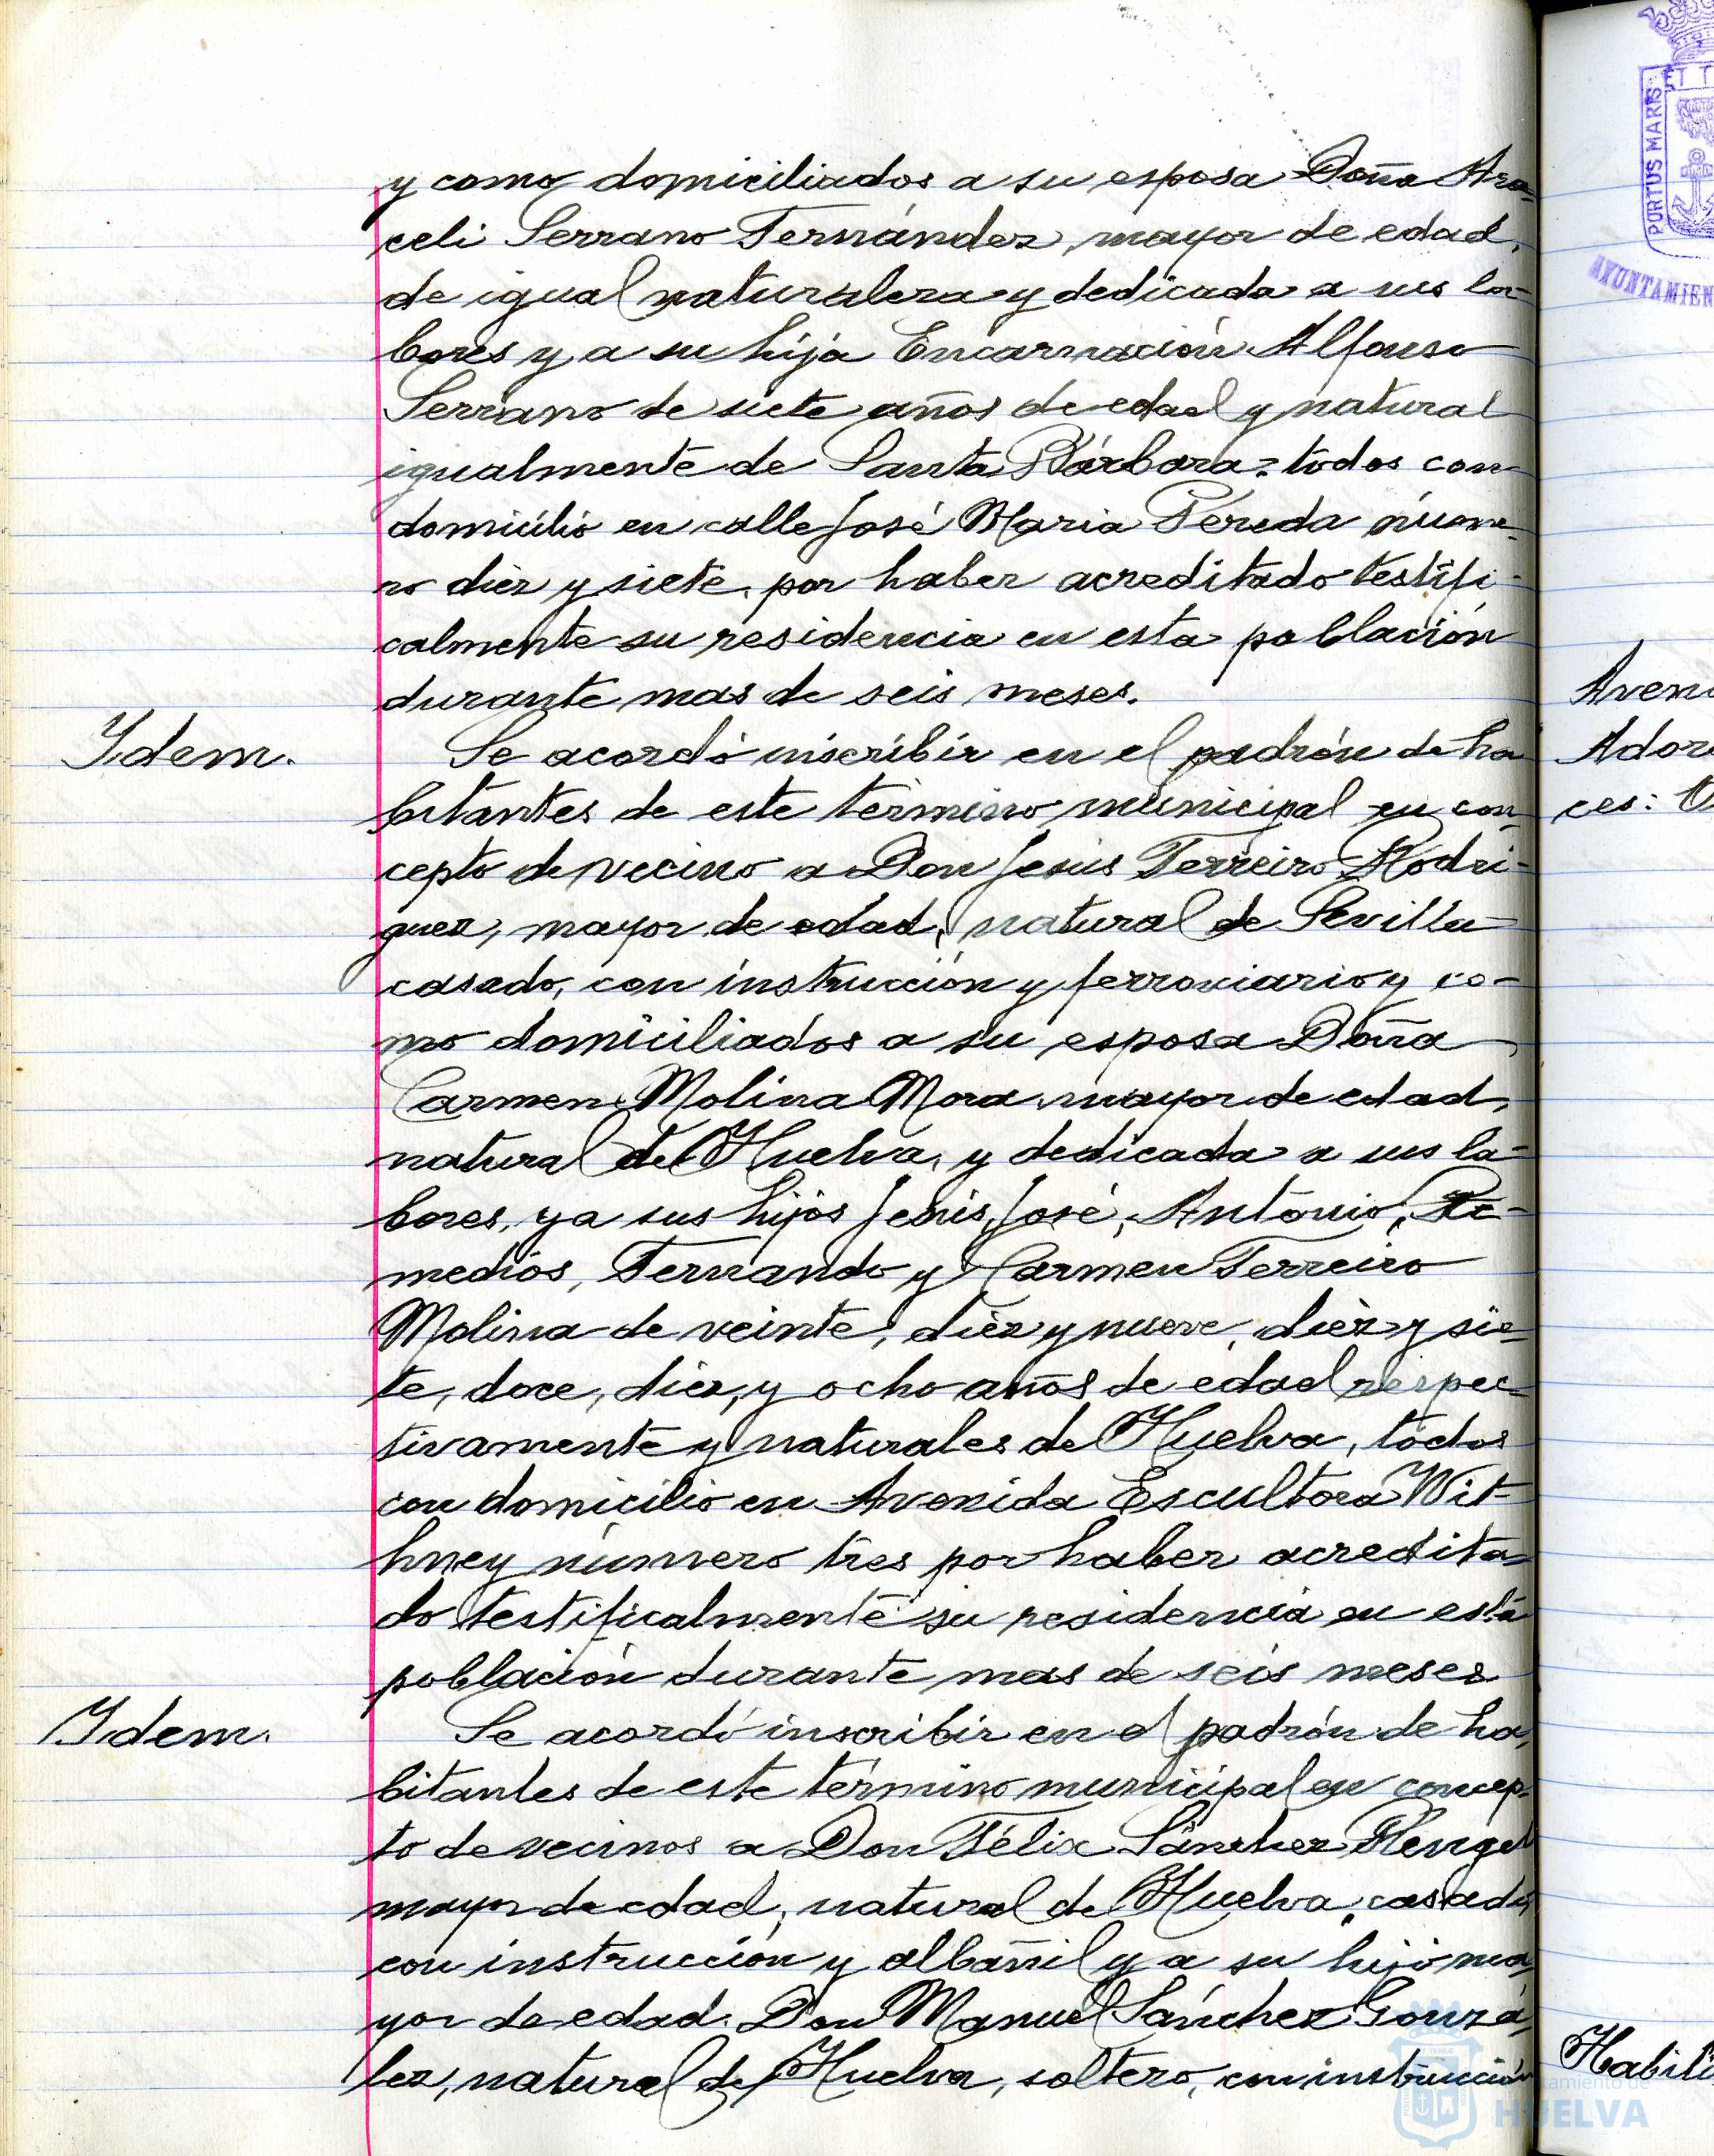 y como domiciliados a su esposa Doña Ara-
celi Serrano Fernández, mayor de edad,
de igual naturaleza y dedicada a sus la-
bores y a su hija Encarnación Alfonso
Serrano de siete años de edad y natural
igualmente de Santa Bárbara, todos con
domicilio en calle José Maria Pereda núme-
ro diez y siete, por haber acreditado testifi-
calmente su residencia en esta población
durante mas de seis meses.
Idem.
Se acordó inscribir en el padrón de ha-
bitantes de este término municipal en con-
cepto de vecino a Don Jesús Ferreiro Rodri-
guez, mayor de edad, natural de Sevilla
casado, con instrucción y ferroviario y co-
mo domiciliados a su esposa Doña
Carmen Molina Mora mayor de edad,
natural de Huelva, y dedicada a sus la-
bores, y a sus hijos Jesús, José, Antonio, Re-
medios, Fernando y Carmen Ferreiro
Molina de veinte, diez y nueve, diez y sie-
te, doce, diez, y ocho años de edad respec-
tivamente y naturales de Huelva, todos
con domicilio en Avenida Escultora Wit-
hney número tres por haber acredita-
do testificalmente su residencia en esta
población durante mas de seis meses
Idem.
Se acordó inscribir en el padrón de ha-
bitantes de este término municipal en concep-
to de vecinos a Don Félix Sánchez Rengel
mayor de edad, natural de Huelva, casado,
con instrucción y albañil y a su hijo ma-
yor de edad. Don Manuel Sánchez Gonzá-
lez, natural de Huelva, soltero, con instrucción
PORTUS MARIS ET T
AYUNTAMIEN
Aven
Ador
ces:
Habili
tamiento de
HUELVA